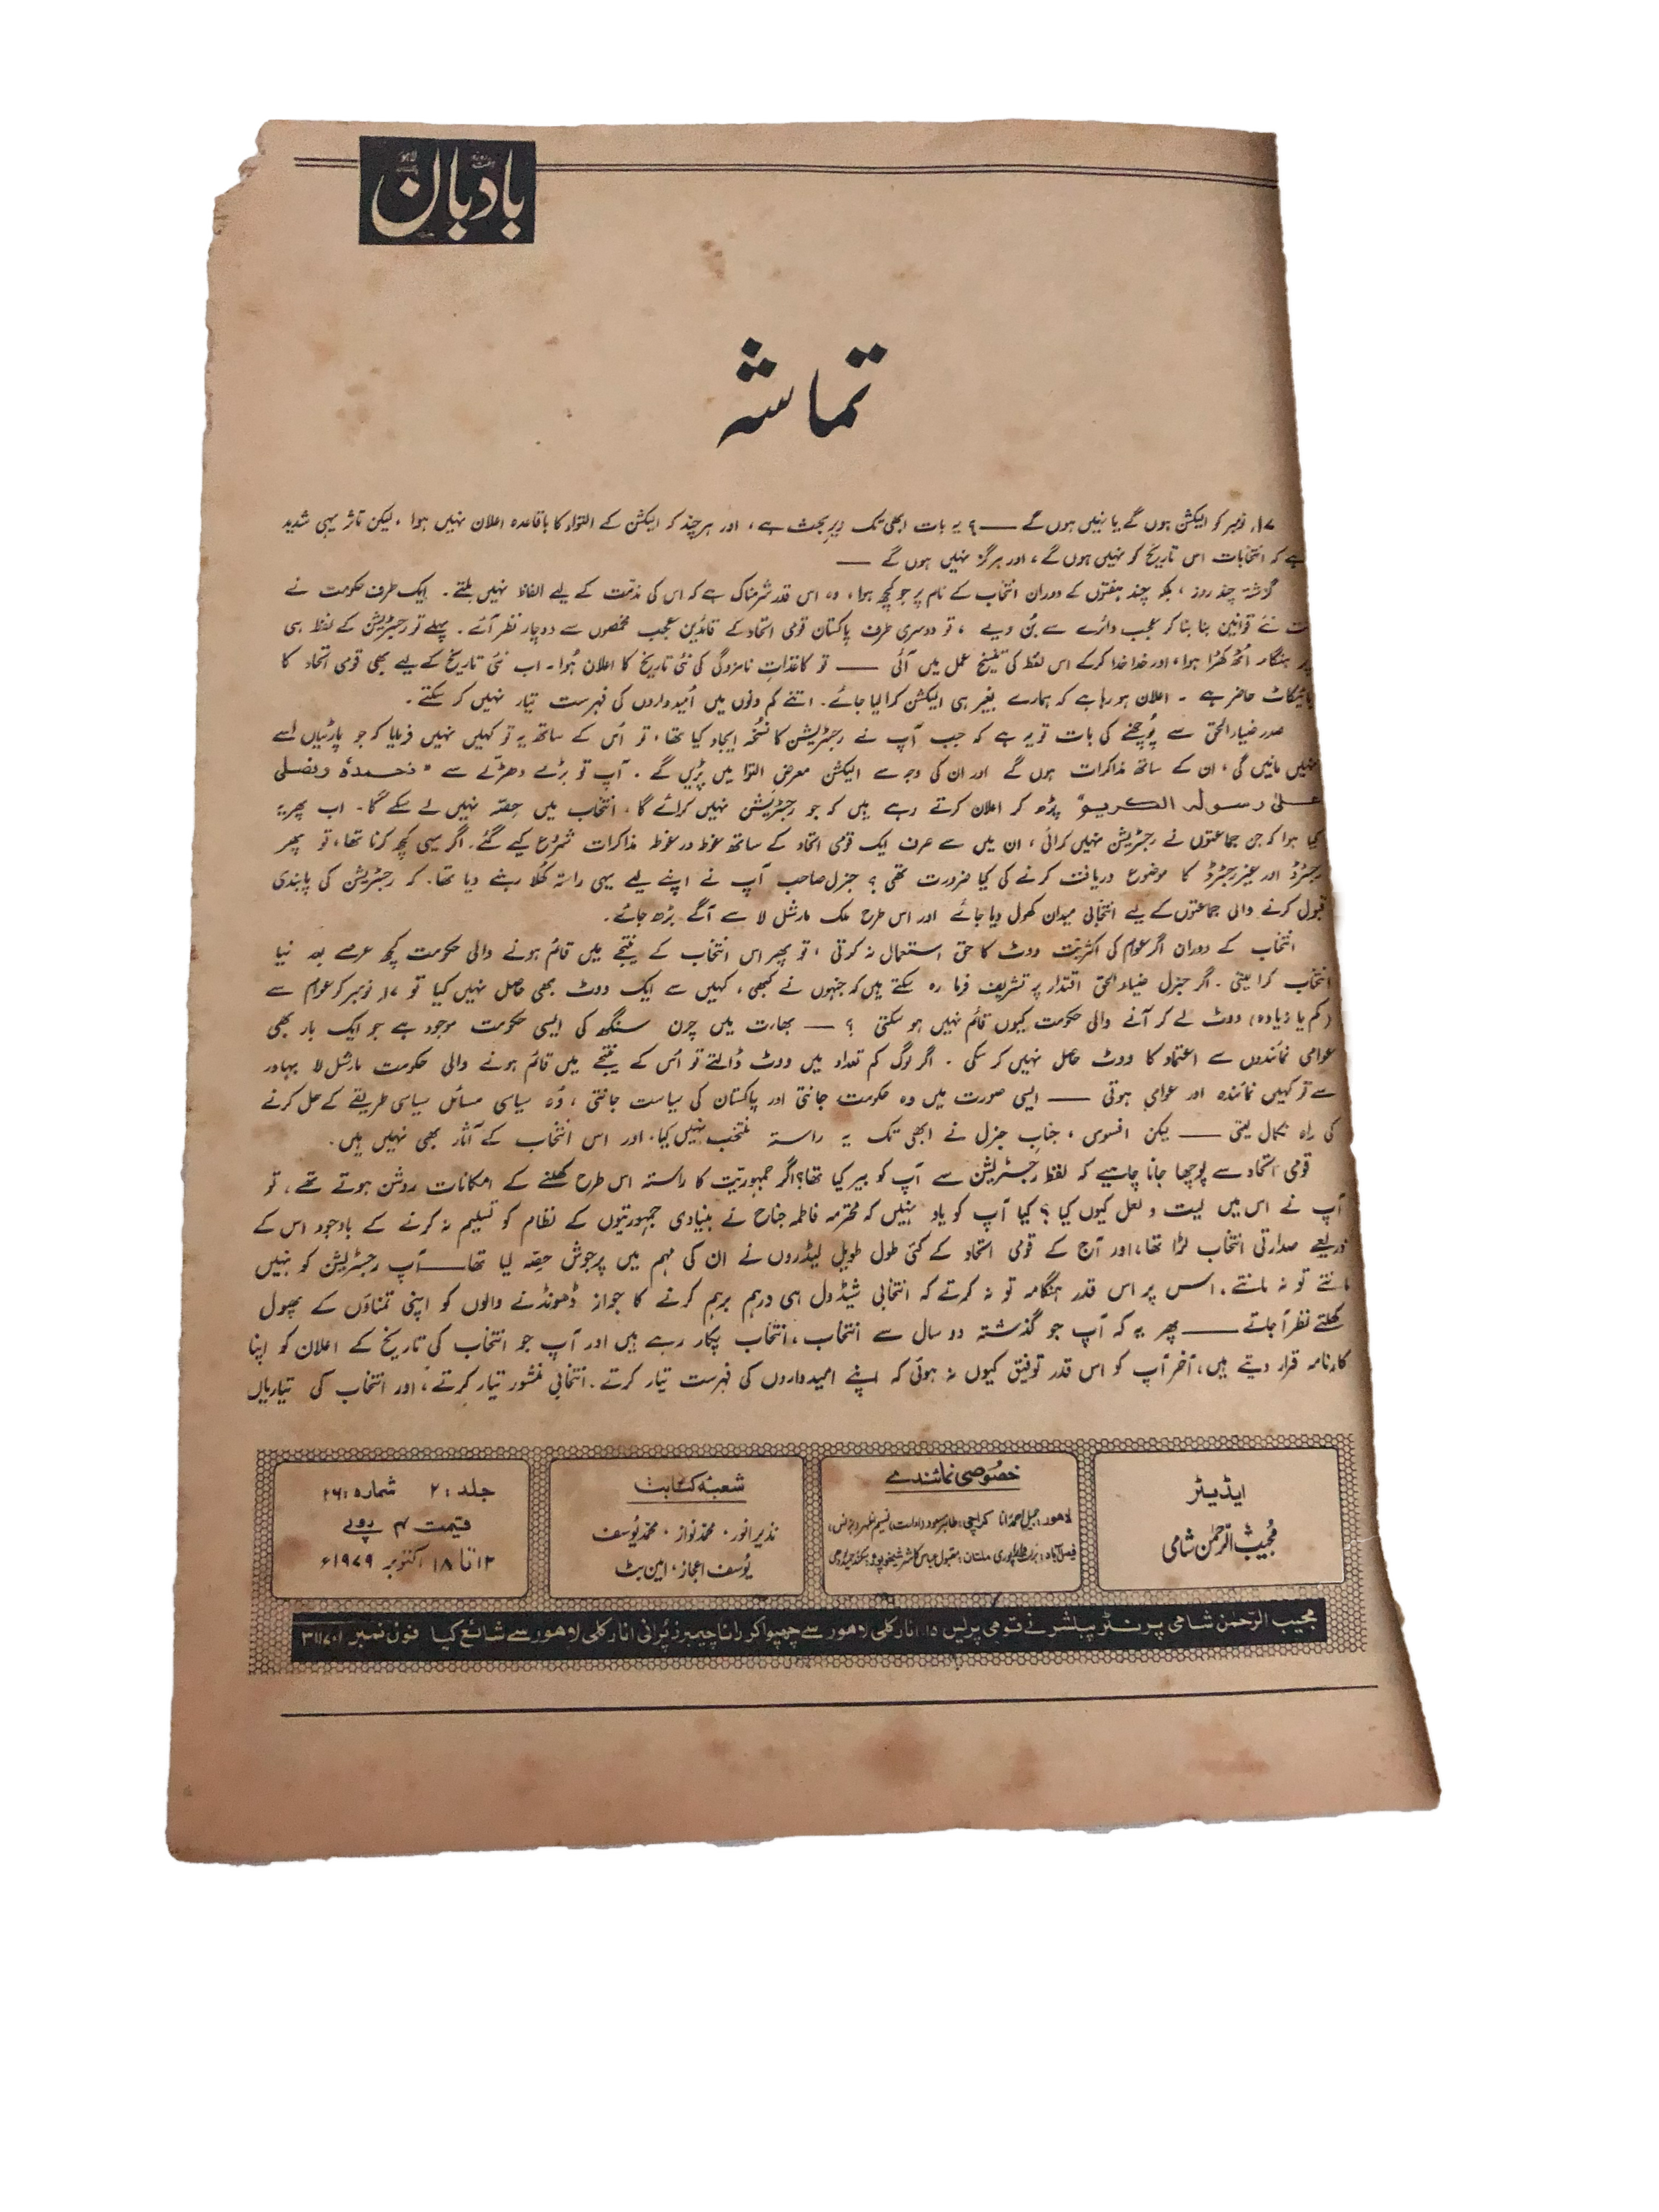 ہفت روزہ بادبان لاہور
تماشہ
۱۷ر نومبر کو الیکشن ہوں گے یا نہیں ہوں گے ——؟ یہ بات ابھی تک زیرِ بحث ہے، اور ہر چند کہ الیکشن کے التواء کا باقاعدہ اعلان نہیں ہوا، لیکن تاثر یہی شدید
ہے کہ انتخابات اس تاریخ کو نہیں ہوں گے، اور ہرگز نہیں ہوں گے ——
گزشتہ چند روز، بلکہ چند ہفتوں کے دوران انتخاب کے نام پر جو کچھ ہوا، وہ اس قدر شرمناک ہے کہ اس کی مذمّت کے لیے الفاظ نہیں ملتے۔ ایک طرف حکومت نے
نئے قوانین بنا بنا کر عجب دائرے سے بُن دیے، تو دوسری طرف پاکستان قومی اتحاد کے قائدین عجب مخمصوں سے دوچار نظر آئے۔ پہلے تو رجسٹریشن کے لفظ ہی
پر ہنگامہ اُٹھ کھڑا ہوا، اور خدا خدا کرکے اس لفظ کی تنسیخ عمل میں آئی —— تو کاغذاتِ نامزدگی کی نئی تاریخ کا اعلان ہُوا۔ اب نئی تاریخ کے لیے بھی قومی اتحاد کا
بائیکاٹ حاضر ہے۔ اعلان ہو رہا ہے کہ ہمارے بغیر ہی الیکشن کرا لیا جائے۔ اتنے کم دنوں میں اُمیدواروں کی فہرست تیار نہیں کر سکتے۔
صدر ضیاء الحق سے پُوچھنے کی بات تو یہ ہے کہ جب آپ نے رجسٹریشن کا نسخہ ایجاد کیا تھا، تو اُس کے ساتھ یہ تو کہیں نہیں فرمایا کہ جو پارٹیاں اسے
نہیں مانیں گی، ان کے ساتھ مذاکرات ہوں گے اور ان کی وجہ سے الیکشن معرضِ التوا میں پڑیں گے۔ آپ تو بڑے دھڑلّے سے "نحمدہٗ ونصلی
علیٰ رسولہ الکریم" پڑھ کر اعلان کرتے رہے ہیں کہ جو رجسٹریشن نہیں کرائے گا، انتخاب میں حِصّہ نہیں لے سکے گا۔ اب پھر یہ
کیا ہوا کہ جن جماعتوں نے رجسٹریشن نہیں کرائی، ان میں سے صرف ایک قومی اتحاد کے ساتھ غوطہ در غوطہ مذاکرات شروع کیے گئے۔ اگر یہی کچھ کرنا تھا، تو پھر
رجسٹرڈ اور غیر رجسٹرڈ کا موضوع دریافت کرنے کی کیا ضرورت تھی؟ جنرل صاحب آپ نے اپنے لیے یہی راستہ کُھلا رہنے دیا تھا۔ کہ رجسٹریشن کی پابندی
قبول کرنے والی جماعتوں کے لیے انتخابی میدان کھول دیا جائے اور اس طرح ملک مارشل لا سے آگے بڑھ جائے۔
انتخاب کے دوران اگر عوام کی اکثریت ووٹ کا حق استعمال نہ کرتی، تو پھر اس انتخاب کے نتیجے میں قائم ہونے والی حکومت کچھ عرصے بعد نیا
انتخاب کرا لیتی۔ اگر جنرل ضیاء الحق اقتدار پر تشریف فرما رہ سکتے ہیں کہ جنہوں نے کبھی، کہیں سے ایک ووٹ بھی حاصل نہیں کیا تو ۱۷ر نومبر کو عوام سے
(کم یا زیادہ) ووٹ لے کر آنے والی حکومت کیوں قائم نہیں ہو سکتی ؟ —— بھارت میں چرن سنگھ کی ایسی حکومت موجود ہے جو ایک بار بھی
عوامی نمائندوں سے اعتماد کا ووٹ حاصل نہیں کر سکی۔ اگر لوگ کم تعداد میں ووٹ ڈالتے تو اُس کے نتیجے میں قائم ہونے والی حکومت مارشل لا بہادر
سے تو کہیں نمائندہ اور عوامی ہوتی —— ایسی صورت میں وہ حکومت جانتی اور پاکستان کی سیاست جانتی، وُہ سیاسی مسائل سیاسی طریقے کے حل کرنے
کی راہ نکال لیتی —— لیکن افسوس، جنابِ جنرل نے ابھی تک یہ راستہ منتخب نہیں کیا، اور اس انتخاب کے آثار بھی نہیں ہیں۔
قومی اتحاد سے پوچھا جانا چاہیے کہ لفظ رجسٹریشن سے آپ کو بیر کیا تھا؟ اگر جمہوریّت کا راستہ اس طرح کھلنے کے امکانات روشن ہوتے تھے، تو
آپ نے اس میں لیت و لعل کیوں کیا؟ کیا آپ کو یاد نہیں کہ محترمہ فاطمہ جناح نے بنیادی جمہوریتوں کے نظام کو تسلیم نہ کرنے کے باوجود اس کے
ذریعے صدارتی انتخاب لڑا تھا، اور آج کے قومی اتحاد کے کئی طول طویل لیڈروں نے ان کی مہم میں پرجوش حِصّہ لیا تھا—— آپ رجسٹریشن کو نہیں
مانتے تو نہ مانتے۔ اس پر اس قدر ہنگامہ تو نہ کرتے کہ انتخابی شیڈول ہی درہم برہم کرنے کا جواز ڈھونڈنے والوں کو اپنی تمناؤں کے پھول
کھلتے نظر آ جاتے —— پھر یہ کہ آپ جو گذشتہ دو سال سے انتخاب، انتخاب پکار رہے ہیں اور آپ جو انتخاب کی تاریخ کے اعلان کو اپنا
کارنامہ قرار دیتے ہیں، آخر آپ کو اس قدر توفیق کیوں نہ ہوئی کہ اپنے امیدواروں کی فہرست تیار کرتے۔ انتخابی منشور تیار کرتے، اور انتخاب کی تیاریاں
ایڈیٹر
مُجیبُ الرّحمٰن شامی
خصُوصی نمائندے
لاہور: جمیل احمد رانا کراچی: طاہر مسعود
فیصل آباد: ملتان: مقبول عباس کاشر شیخوپورہ:
شعبۂ کتابت
نذیر انور، محمد نواز، محمد یُوسف
یُوسف اعجاز، امین بٹ
جلد : ۲ شمارہ : ۲۶
قیمت ۴ روپے
۱۲ تا ۱۸ اکتوبر ۱۹۷۹ء
مجیب الرّحمٰن شامی پرنٹر پبلشر نے قومی پریس ۱۵ انارکلی لاہور سے چھپوا کر رانا چیمبرز پُرانی انارکلی لاہور سے شائع کیا فون نمبر ۳۱۱۷۰۱